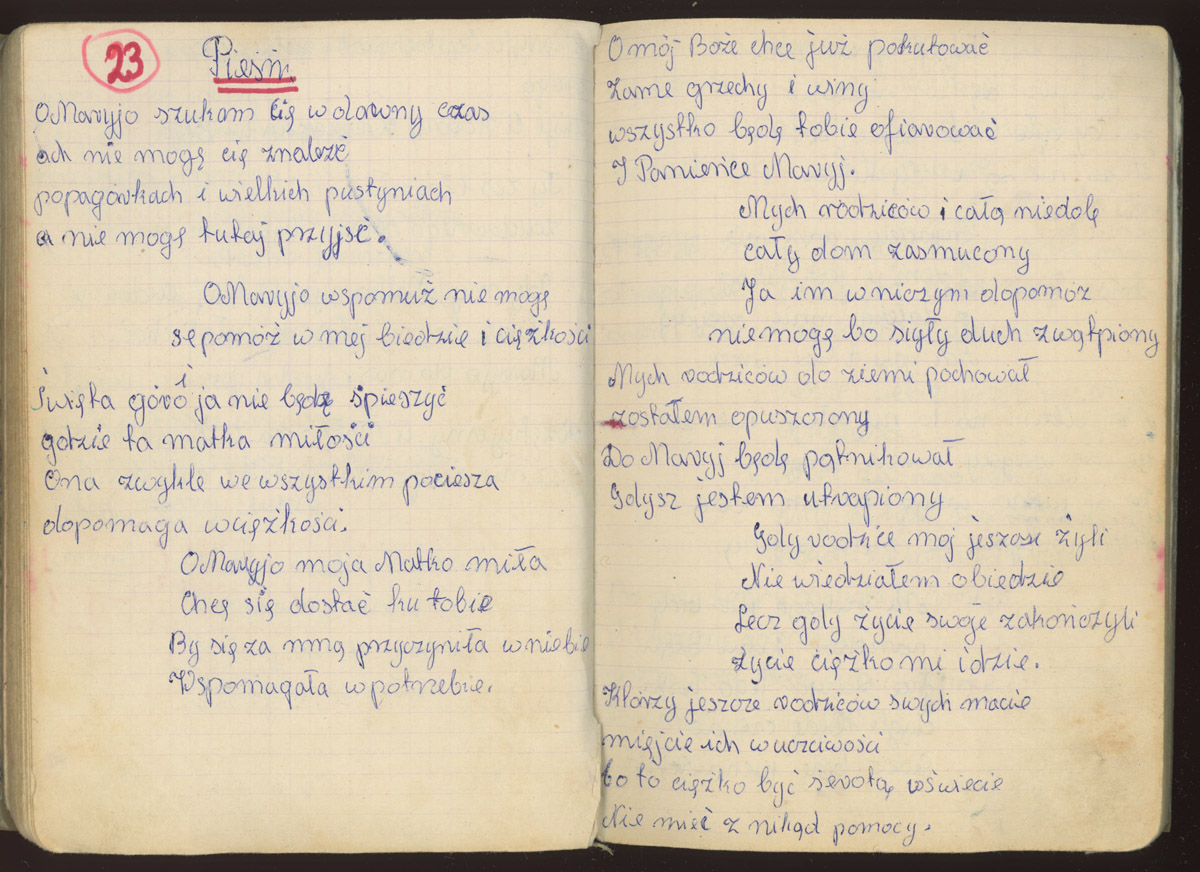 23
Pieśń
OMaryjo szukam cię wdawny czas
ach nie mogę cię znaleźć
popagórkach i wielkich pustyniach
a nie mogę tutaj przyjść.
OMaryjo wspomuż nie mogę
sepomóż w mej biedzie i ciężkości
Święta góro i ja nie będę spieszyć
gdzie ta matka miłości
Ona zwykle we wszystkim pociesza
dopomaga wciężkości.
OMaryjo moja Matko miła
Chcę się dostać ku tobie
By się za mną przyczyniła w niebie
Wspomagała wpotrzebie.
O mój Boże chce już pokutować
zame grzechy i winy
wszystko będę tobie ofiarować
I Panieńce Maryj.
Mych rodziców i całą niedolę
cały dom zasmucony
Ja im wniczym dopomóz
niemogę bo sigły duch zwątpiony
Mych rodziców do ziemi pochował
zostałem opuszczony
Do Maryj będę pątnikował
Gdysz jestem utrapiony
Gdy rodzice moj jeszcze żyli
Nie wiedziałem obiedzie
Lecz gdy życie swoje zakończyli
życie ciężko mi idzie.
Którzy jeszcze rodziców swych macie
miejcie ich wuczciwości
bo to ciężko być sierotą wświecie
Nie mieć z nikąd pomocy.